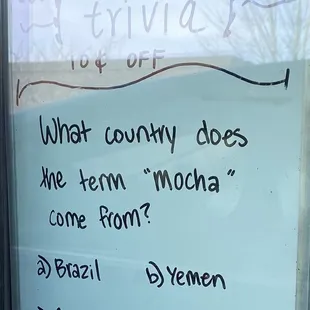 {trivia}
10¢ OFF
What country does
the term "mocha"
come from?
a) Brazil b) Yemen